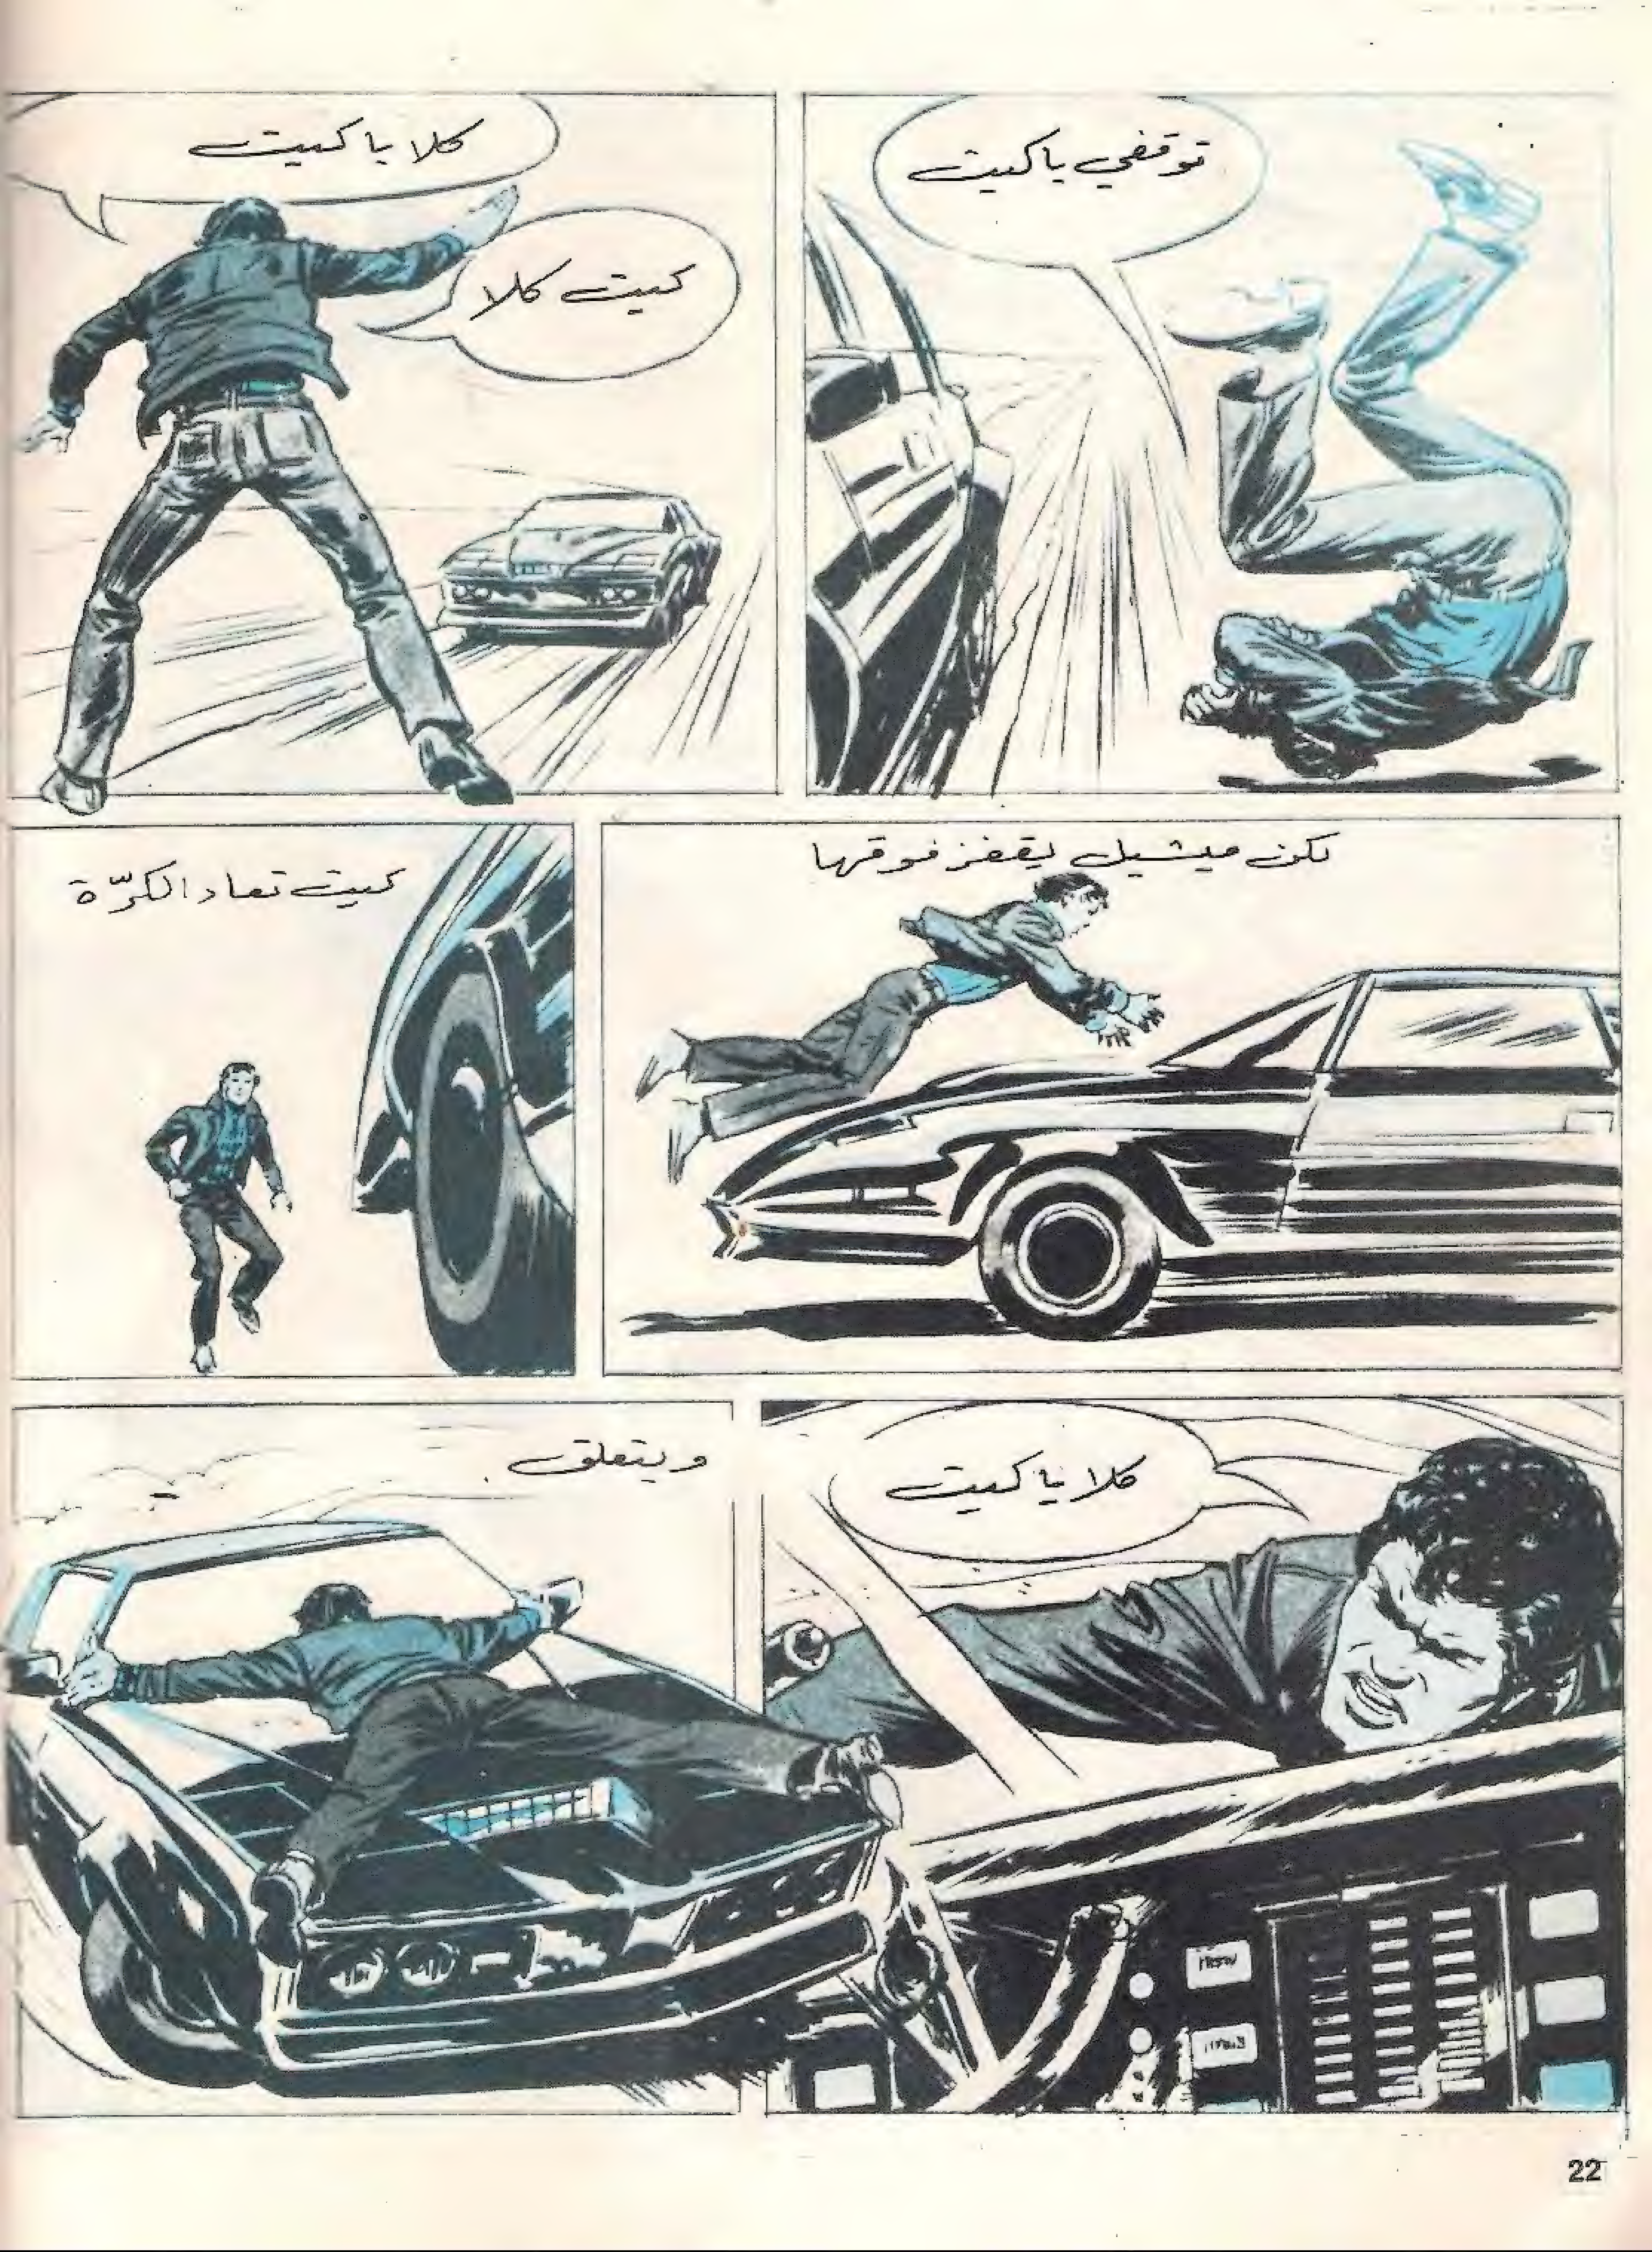 توقفي يا كيت
كلا يا كيت
كيت كلا
لكن ميشيل يقفز فوقها
كيت تعاد الكرّة
كلا يا كيت
ويتعلق
22